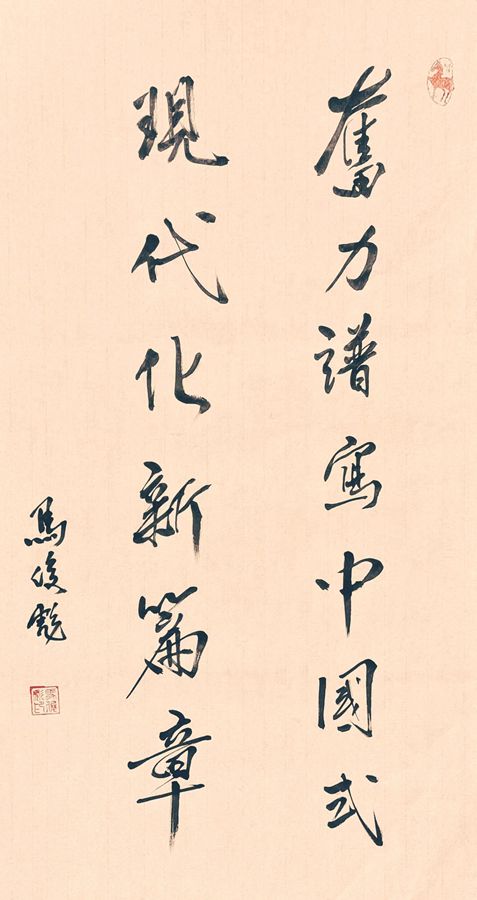 奮力譜寫中國式
現代化新篇章
馬俊彪